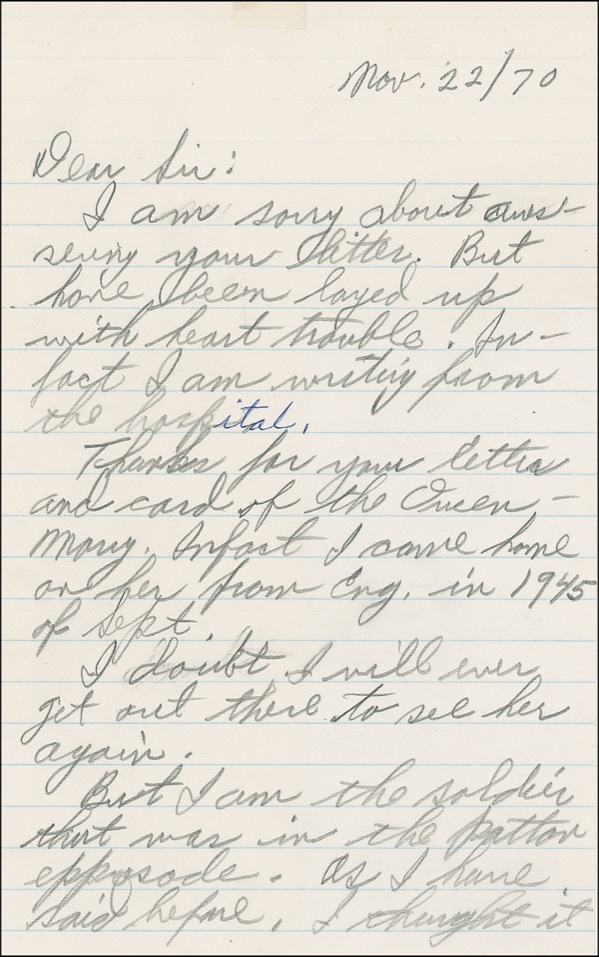 Nov. 22/70
Dear Sir:
I am sorry about aws-
sering your letter. But
have been layed up
with heart trouble. In-
fact I am writing from
the hospital.
Thanks for your letter
and card of the Queen-
Mary. Infact I came home
on her from Eng. in 1945
of Sept
I doubt I will ever
get out there to see her
again.
But I am the soldier
that was in the Patton
eppysode. As I have
said before, I thought it